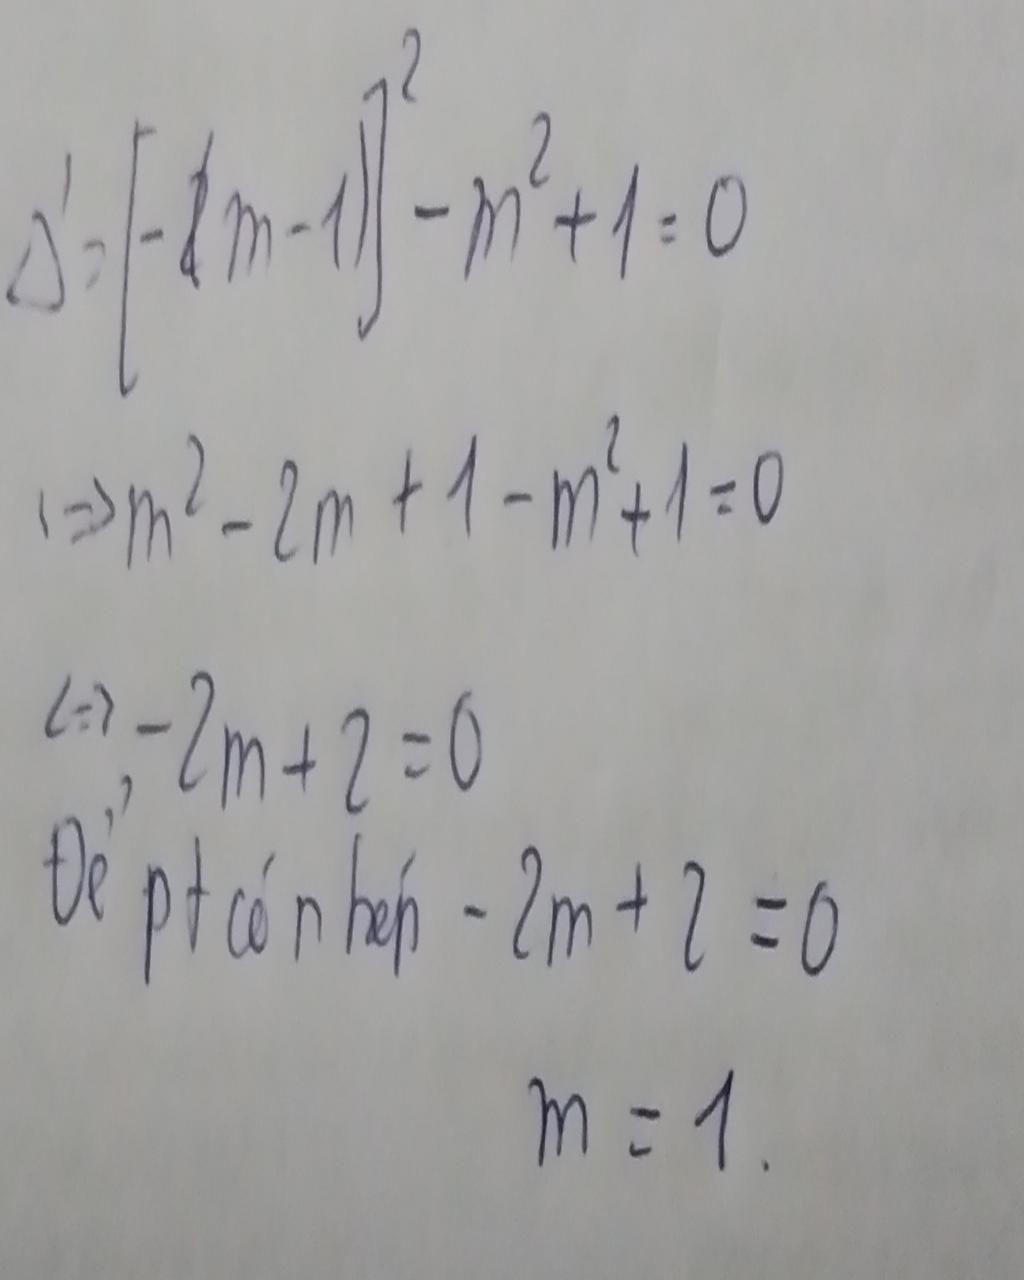 Δ' = [-(m-1)]² - m² + 1 = 0
<=> m² - 2m + 1 - m² + 1 = 0
<=> -2m + 2 = 0
Để pt có n kép - 2m + 2 = 0
m = 1.